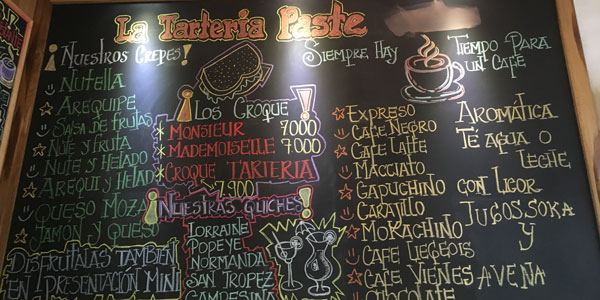 La Tarteria Paste
¡Nuestros Crepes!
Nutella
Arequipe
Salsa de frutas
Nute y fruta
Nute y Helado
Arequi y Helad
Queso Moza
Jamón y Queso
Disfrutalas también
en presentación mini
¡Los Croque!
* Monsieur 7000
* Mademoiselle 7000
* Croque Tarteria
7.900
¡Nuestras Quiches!
Lorraine
Popeye
Normanda
San Tropez
Campesina
Siempre Hay Tiempo Para
un Café
Expreso
Cafe Negro
Cafe Latte
Macciato
Capuchino
Carajillo
Mokachino
Cafe Liegeois
Cafe Vienes
Chocolate
Aromática
Té Agua o
Leche
con Licor
Jugos Soka
y
Avena